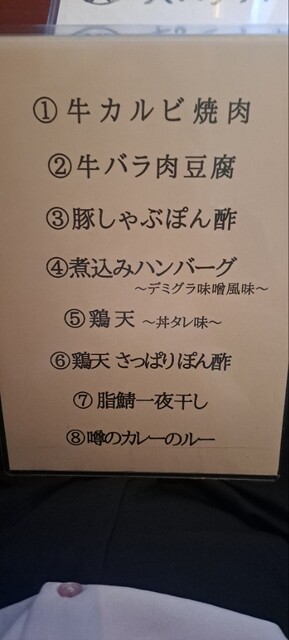 ①牛カルビ焼肉
②牛バラ肉豆腐
③豚しゃぶぽん酢
④煮込みハンバーグ
～デミグラ味噌風味～
⑤鶏天 ～丼タレ味～
⑥鶏天 さっぱりぽん酢
⑦ 脂鯖一夜干し
⑧噂のカレーのルー